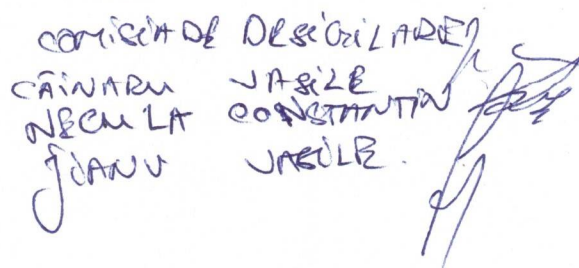 COMISIA DE DESIGILARE
CĂINARU VASILE
NECULA CONSTANTIN
JIANU VASILE.